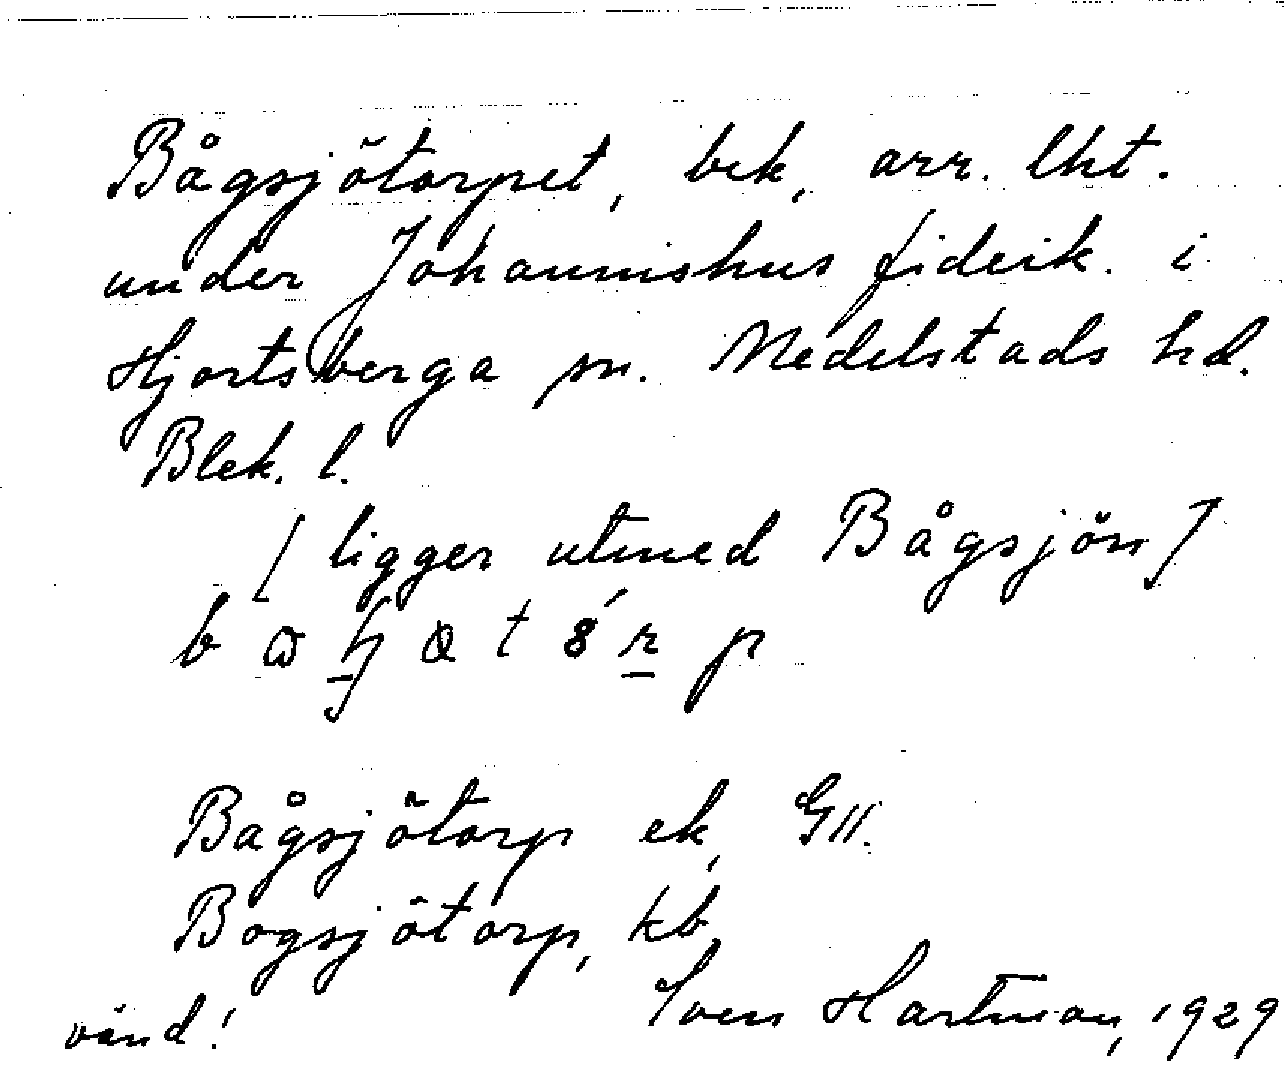 Bågsjötorpet, bek, arr. lht.
under Johannishus fideik. i
Hjortsberga sn. Medelstads hd.
Blek. l.
[ligger utmed Bågsjön]
b
Bågsjötorp ek, GII.
Bogsjötorp, kb
vänd! Sven Hartman, 1929